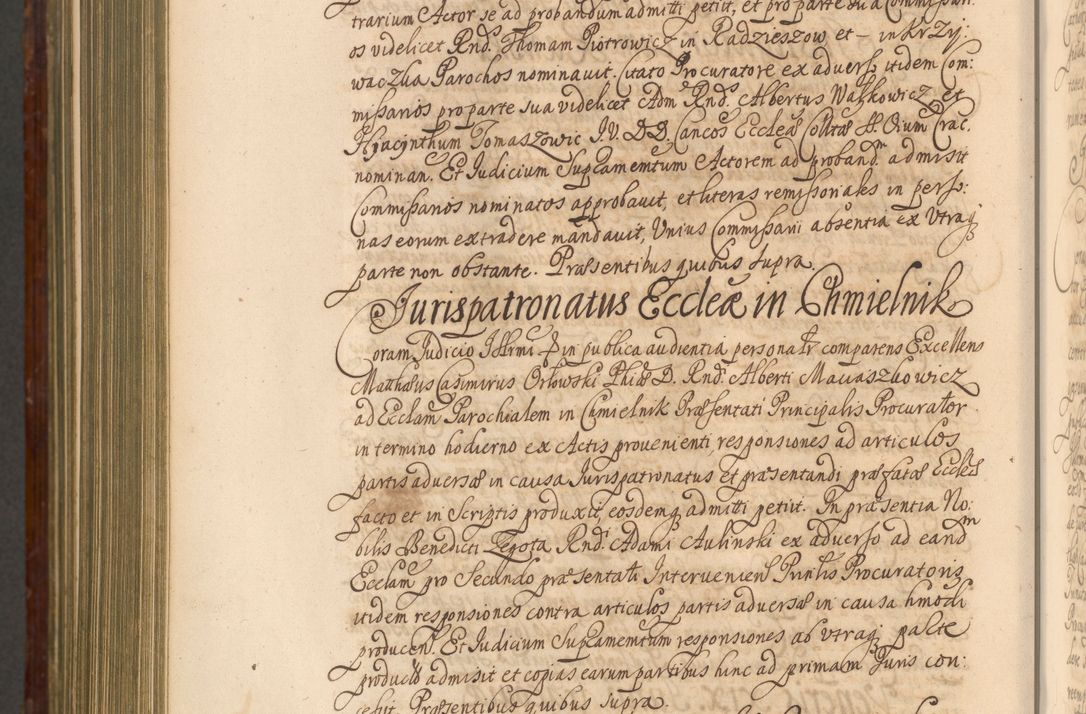 trarium Actor se ad probandum admitti petiit, et pro parte sua Commissari:
os videlicet Rnd. Thomam Piotrowicz in Radzieszow et – in Krzy:
waczka Parochos nominavit. Citato Procuratore ex adverso itidem Com:
missarios pro parte sua videlicet Adm Rnd. Albertus Waskowicz et
Hyacynthum Tomaszowic I.V. D.D. Cancos Eccleæ Colltæ St. Oium Crac.
nominan. Et Iudicium Suplamemtum Actorem ad proband.m admisit
Commissarios nominatos approbavit, et literas remissionales in perso:
nas eorum extradere mandavit, Unius Commissarii absentia ex Utraq
parte non obstante. Præsentibus quibus supra.
Iurispatronatus Eccleæ in Chmielnik
Coram Iudicio Illrmi in publica audientia personalr comparens Excellens
Matthæus Casimirus Orłowski Philæ D. Rnd. Alberti Maciaszkowicz
ad Ecclam Parochialem in Chmielnik Præsentati Principalis Procurator
in termino hodierno ex Actis provenienti, responsiones ad articulos
partis adversæ in causa Iurispatronatus et præsentandi præfatæ Ecclæ
facto et in Scriptis produxit, eosdemq admitti petiit. In præsentia No:
bilis Benedicti Zegota Rnd. Adami Aulinski ex adverso ad eand.m
Ecclam pro Secundo præsentati Intervenien Prinlis Procuratoris
itidem responsiones contra articulos partis adversæ in causa hmodi
producen. Et Iudicium Suplamemtum responsiones ab utraq parte
productas admisit et copias earum partibus hinc ad primam Iuris con:
cessit. Præsentibus quibus supra.